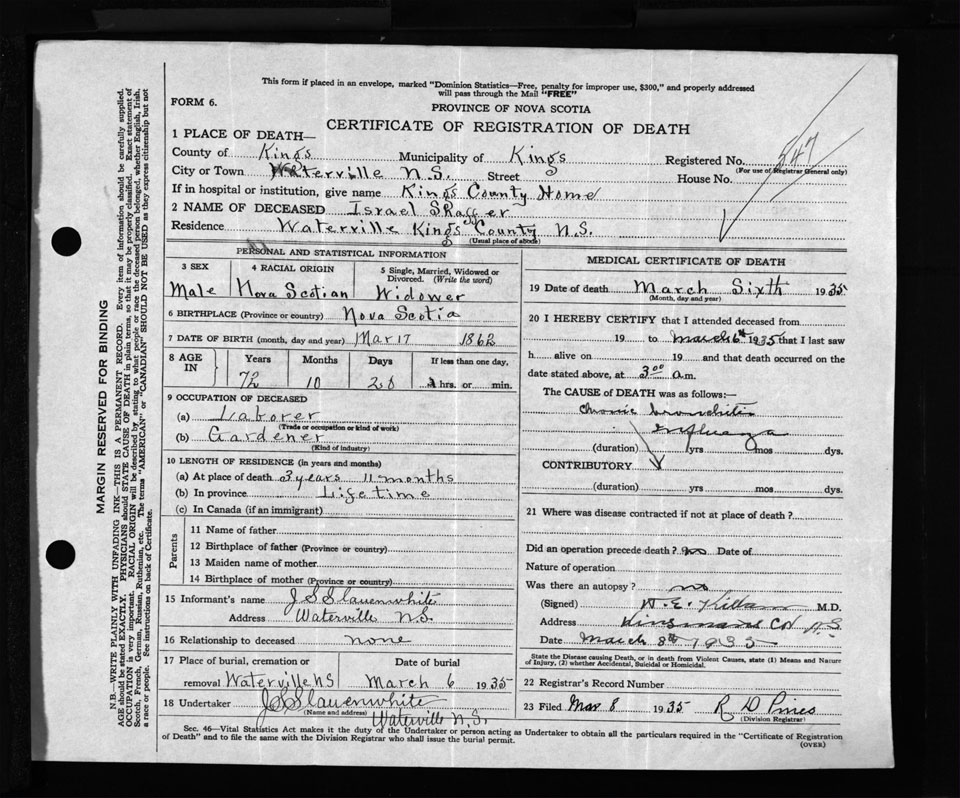 This form if placed in an envelope, marked "Dominion Statistics—Free, penalty for improper use, $300," and properly addressed
will pass through the Mail "FREE"
FORM 6.
PROVINCE OF NOVA SCOTIA
CERTIFICATE OF REGISTRATION OF DEATH
1 PLACE OF DEATH—
County of Kings Municipality of Kings Registered No. 547
(For use of Registrar General only)
City or Town Waterville N.S. Street House No.
If in hospital or institution, give name Kings County Home
2 NAME OF DECEASED Israel Shaffer
Residence Waterville Kings County N.S.
(Usual place of abode)
PERSONAL AND STATISTICAL INFORMATION
3 SEX 4 RACIAL ORIGIN 5 Single, Married, Widowed or Divorced. (Write the word)
Male Nova Scotian Widower
6 BIRTHPLACE (Province or country) Nova Scotia
7 DATE OF BIRTH (month, day and year) Mar 17 1862
8 AGE IN Years Months Days If less than one day,
72 10 20 hrs. or min.
9 OCCUPATION OF DECEASED
(a) Laborer
(Trade or occupation or kind of work)
(b) Gardener
(Kind of industry)
10 LENGTH OF RESIDENCE (in years and months)
(a) At place of death 3 years 11 months
(b) In province Lifetime
(c) In Canada (if an immigrant)
Parents
11 Name of father
12 Birthplace of father (Province or country)
13 Maiden name of mother
14 Birthplace of mother (Province or country)
15 Informant's name J S Slauenwhite
Address Waterville N.S.
16 Relationship to deceased none
17 Place of burial, cremation or Date of burial
removal Waterville NS March 6 1935
18 Undertaker J S Slauenwhite
(Name and address) Waterville N.S.
MEDICAL CERTIFICATE OF DEATH
19 Date of death March Sixth 1935
(Month, day and year)
20 I HEREBY CERTIFY that I attended deceased from
19 to March 6th 1935 that I last saw
h alive on 19 and that death occurred on
date stated above, at 3 00 a.m.
The CAUSE of DEATH was as follows:—
Chronic bronchitis
Influenza
(duration) yrs mos dys.
CONTRIBUTORY
(duration) yrs mos dys.
21 Where was disease contracted if not at place of death?
Did an operation precede death? no Date of
Nature of operation
Was there an autopsy? no
(Signed) M.D.
Address
Date March 8th 1935
State the Disease causing Death, or in death from Violent Causes, state (1) Means and Nature
of Injury, (2) whether Accidental, Suicidal or Homicidal.
22 Registrar's Record Number
23 Filed Mar 8 1935 R D
(Division Registrar)
Sec. 46—Vital Statistics Act makes it the duty of the Undertaker or person acting as Undertaker to obtain all the particulars required in the "Certificate of Registration
of Death" and to file the same with the Division Registrar who shall issue the burial permit.
(OVER)
MARGIN RESERVED FOR BINDING
N.B.—WRITE PLAINLY WITH UNFADING INK—THIS IS A PERMANENT RECORD. Every item of information should be carefully supplied.
AGE should be stated EXACTLY. PHYSICIANS should STATE CAUSE OF DEATH in plain terms, so that it may be properly classified. Exact statement of
OCCUPATION is very important. RACIAL ORIGIN will be described by stating to what people or race the deceased person belonged, whether English, Irish,
Scotch, French, German, Russian, Ruthenian, etc. The terms "AMERICAN" or "CANADIAN" SHOULD NOT BE USED as they express citizenship but not
a race or people. See instructions on back of Certificate.